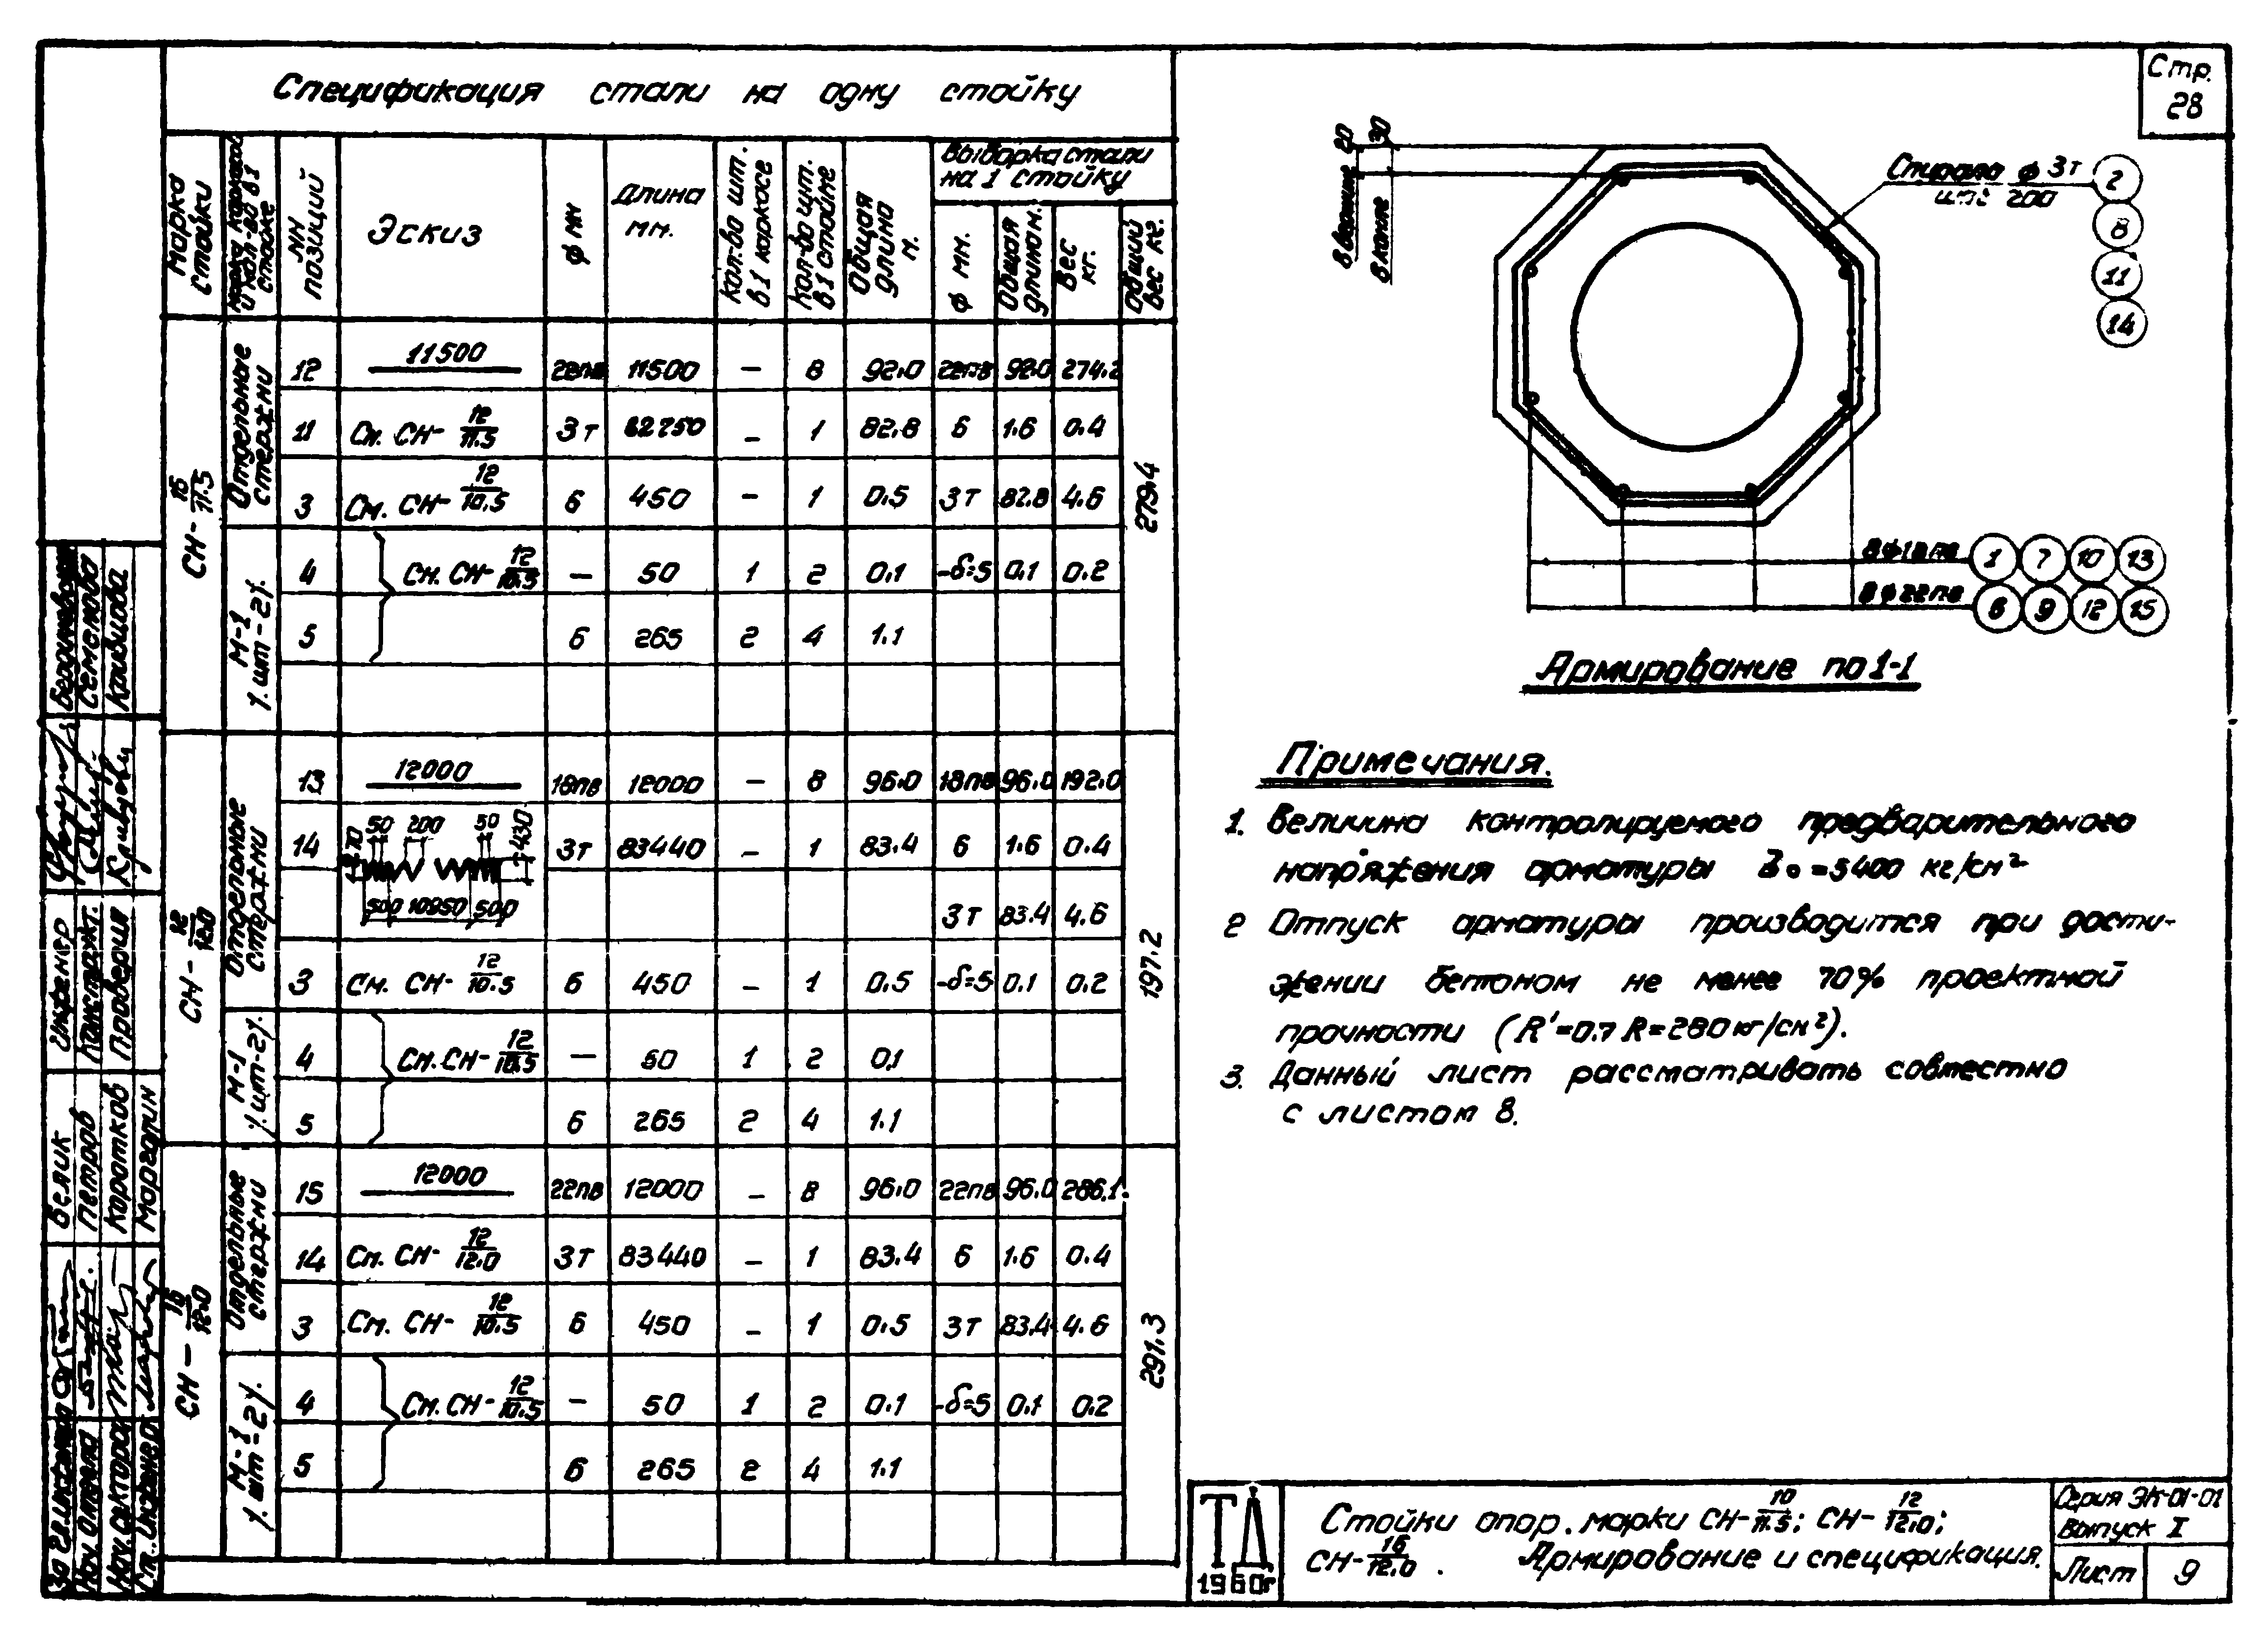 Спецификация стали на одну стойку
Марка стойки
NN позиций
Эскиз
ф мм
Длина мм.
Кол-во шт. в 1 каркасе
Кол-во шт. в 1 стойке
Общая длина м.
Выборка стали на 1 стойку
ф мм.
Общая длина м.
Вес кг.
Общий вес кг.
СН- 16/11.5
Отдельные стержни
12 11500 22пв 11500 – 8 92.0 22пв 92.0 274.2
11 См. СН- 12/11.5 3т 82750 – 1 82.8 6 1.6 0.4
3 См. СН- 12/10.5 6 450 – 1 0.5 3т 82.8 4.6
279.4
М-1 /.шт-2/.
4 См. СН- 12/10.5 – 50 1 2 0.1 -δ=5 0.1 0.2
5 6 265 2 4 1.1
СН- 12/12.0
Отдельные стержни
13 12000 18пв 12000 – 8 96.0 18пв 96.0 192.0
14 3т 83440 – 1 83.4 6 1.6 0.4
50 200 50 430
270
500 10950 500
3т 83.4 4.6
3 См. СН- 12/10.5 6 450 – 1 0.5 -δ=5 0.1 0.2
197.2
М-1 /.шт-2/.
4 См. СН- 12/10.5 – 50 1 2 0.1
5 6 265 2 4 1.1
СН- 16/12.0
Отдельные стержни
15 12000 22пв 12000 – 8 96.0 22пв 96.0 286.1
14 См. СН- 12/12.0 3т 83440 – 1 83.4 6 1.6 0.4
3 См. СН- 12/10.5 6 450 – 1 0.5 3т 83.4 4.6
291.3
М-1 /.шт-2/.
4 См. СН- 12/10.5 – 50 1 2 0.1 -δ=5 0.1 0.2
5 6 265 2 4 1.1
Стр.
28
20
30
Спираль ф 3т
шаг 200
2
8
11
14
8ф18пв 1 7 10 13
8ф22пв 6 9 12 15
Армирование по 1-1
Примечания.
1. Величина контролируемого предварительного
напряжения арматуры = 5400 кг/см²
2 Отпуск арматуры производится при дости-
жении бетоном не менее 70% проектной
прочности (R'=0.7 R=280 кг/см²).
3. Данный лист рассматривать совместно
с листом 8.
ТД
1960г
Стойки опор. марки СН- 10/11.5; СН- 12/12.0;
СН- 16/12.0 . Армирование и спецификация.
Серия ЭК-01-01
Выпуск I
Лист 9
Семенова
Кравцова
Инженер
Проверил
Белик
Петров
Коротков
Нач. отдела
Нач. сектора
Ст. инженер